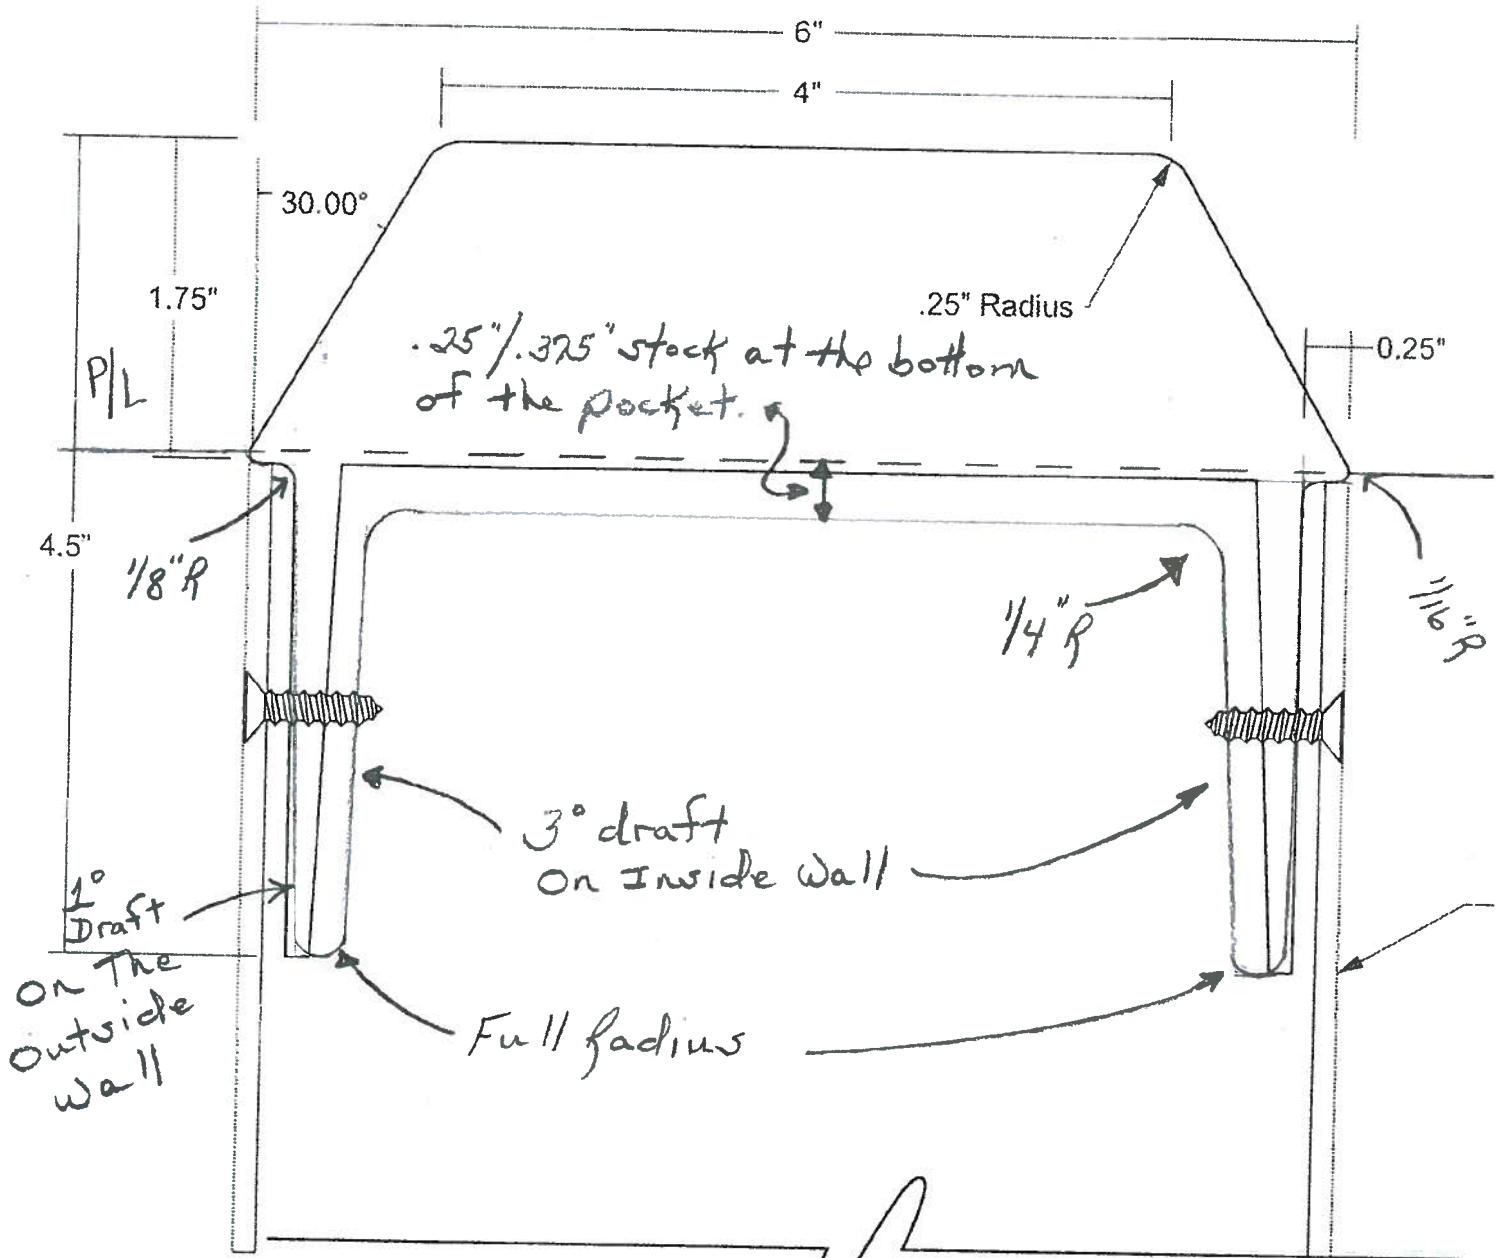 6"
4"
30.00°
1.75"
.25" Radius
0.25"
.25"/.375" stock at the bottom
of the pocket.
P/L
4.5"
1/8"R
1/4"R
1/16"R
3° draft
On Inside Wall
1°
Draft
On The
Outside
Wall
Full Radius